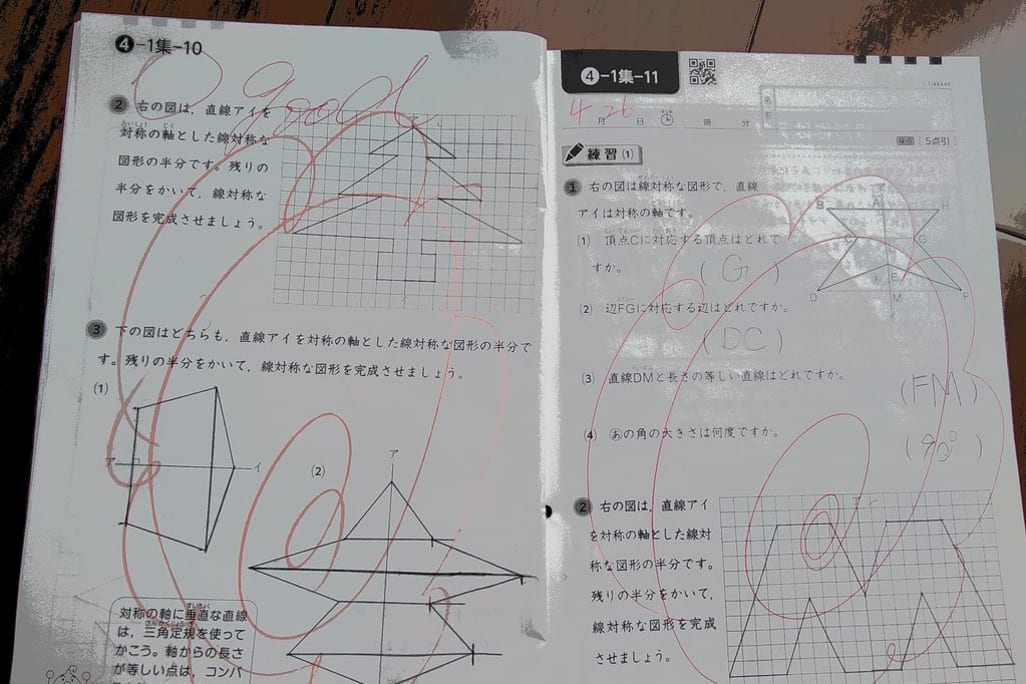 4-1集-10
good
2 右の図は，直線アイを
対称の軸とした線対称な
図形の半分です。残りの
半分をかいて，線対称な
図形を完成させましょう。
3 下の図はどちらも，直線アイを対称の軸とした線対称な図形の半分で
す。残りの半分をかいて，線対称な図形を完成させましょう。
(1)
ア
イ
(2)
ア
対称の軸に垂直な直線
は，三角定規を使って
かこう。軸からの長さ
が等しい点は，コンパ
4-1集-11
4月26日 時 分
[5点引]
練習(1)
1 右の図は線対称な図形で，直線
アイは対称の軸です。
(1) 頂点Cに対応する頂点はどれで
すか。
(G)
(2) 辺FGに対応する辺はどれですか。
(DC)
(3) 直線DMと長さの等しい直線はどれですか。
(FM)
(4) あの角の大きさは何度ですか。
(90°)
B A H
C G
E
D M F
2 右の図は，直線アイ
を対称の軸とした線対
称な図形の半分です。
残りの半分をかいて，
線対称な図形を完成
させましょう。